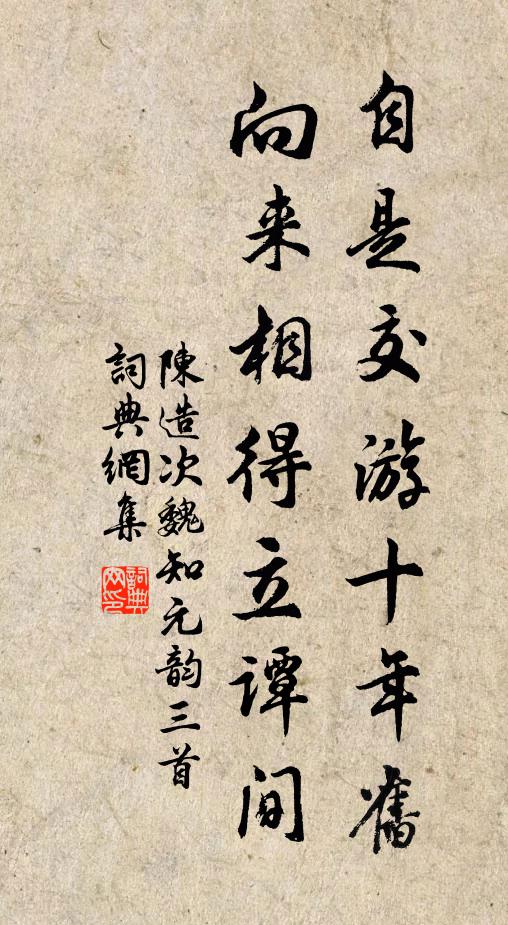 自是交游十年舊
向来相得立譚間
陳造次魏知元韵三首
詞典網集
詞典網印